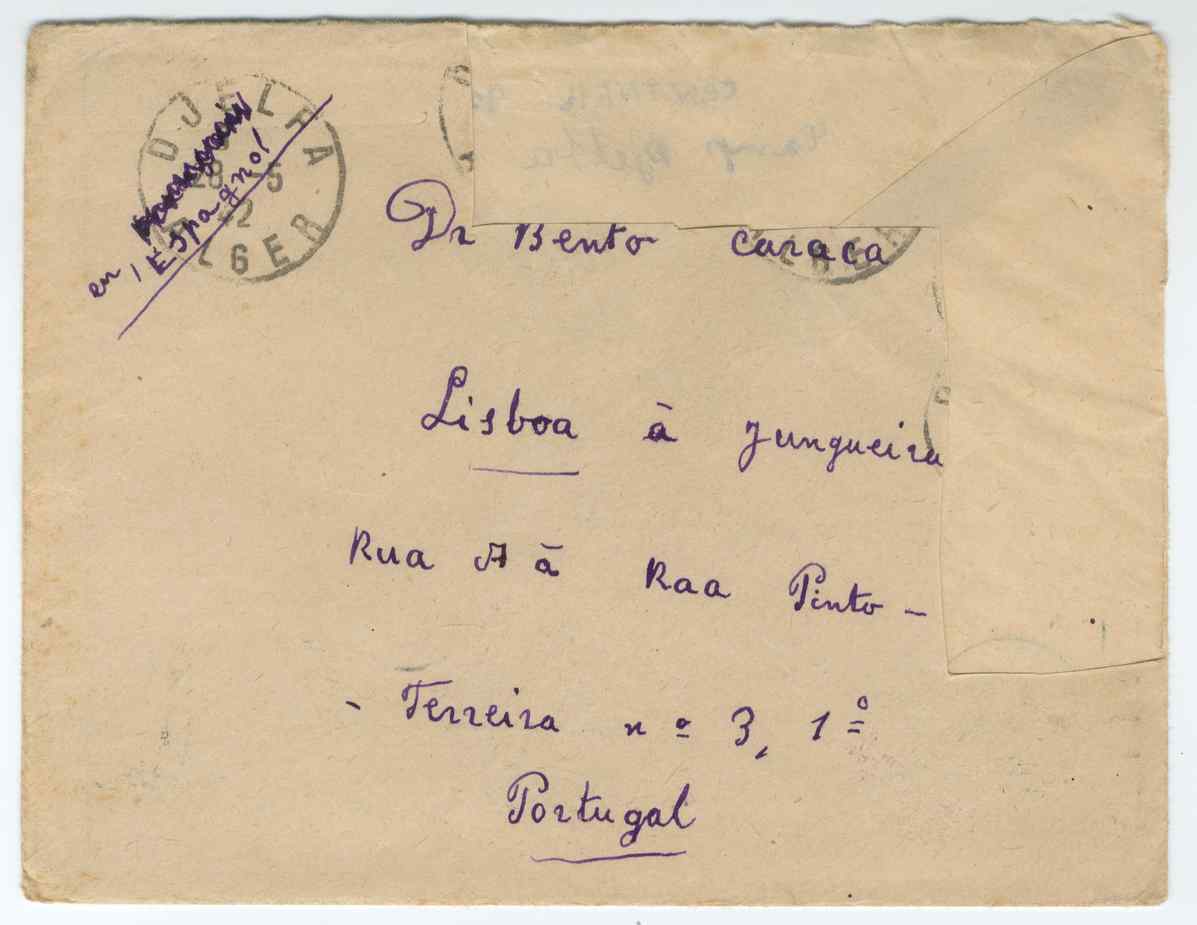 DJELFA
28 -5
42
ALGER
en Espagnol
Dr Bento Caraca
Lisboa à Jungueira
Rua A à Raa Pinto -
- Ferreira nº 3, 1º
Portugal